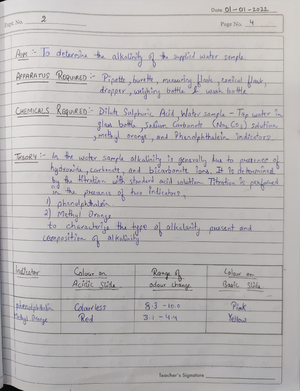 Date 01-01-2022
Expt. No. 2
Page No. 4
AIM :- To determine the alkalinity of the supplied water sample
APPARATUS REQUIRED :- Pipette, burette, measuring flask, conical flask,
dropper, weighing bottle & wash bottle.
CHEMICALS REQUIRED :- Dilute Sulphuric Acid, Water sample - Tap water in
glass bottle, Sodium Carbonate (Na2CO3) solution,
methyl orange, and Phenolphthalein indicators.
THEORY :- In the water sample alkalinity is generally due to presence of
hydroxide, carbonate, and bicarbonate ions. It is determined
by the titration with standard acid solution. Titration is performed
in the presence of two indicators,
1) phenolphthalein
2) Methyl Orange
to characterize the type of alkalinity present and
composition of alkalinity
Indicator Colour on Range of Colour on
Acidic Side colour change Basic Side
phenolphthalein Colourless 8.3 - 10.0 Pink
Methyl Orange Red 3.1 - 4.4 Yellow
Teacher's Signature